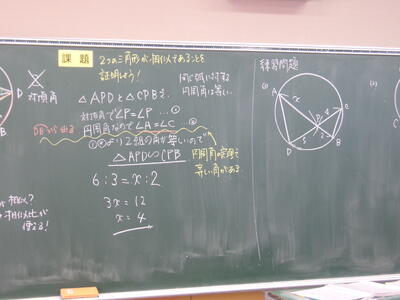 課題
2つの三角形が相似であることを
証明しよう!
対頂角
同じ弧に対する
円周角は等しい。
△APDと△CPBで、
対頂角で∠P=∠P …①
円周角なので∠A=∠C …②
①②より2組の角が等しいので
△APD∽△CPB
円周角の定理で
等しい角がある。
6:3=x:2
3x=12
x=4
相似?
相似比が
使える!
練習問題
(1)
A
x
P
4
C
5
2
D
B
D
B